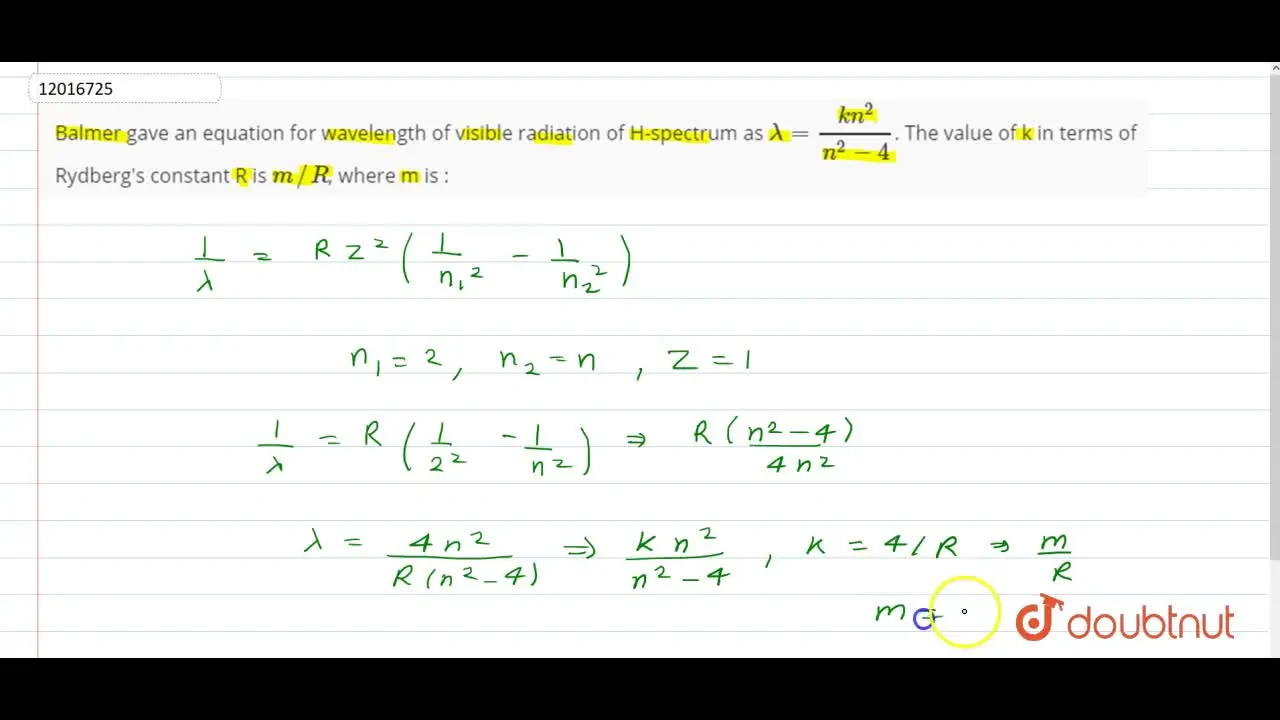 12016725
Balmer gave an equation for wavelength of visible radiation of H-spectrum as λ = kn²/(n² − 4). The value of k in terms of
Rydberg's constant R is m/R, where m is :
1/λ = R Z² (1/n₁² − 1/n₂²)
n₁ = 2, n₂ = n, Z = 1
1/λ = R (1/2² − 1/n²) ⇒ R(n² − 4)/4n²
λ = 4n²/R(n² − 4) ⇒ K n²/n² − 4, K = 4/R ⇒ m/R
m =
doubtnut